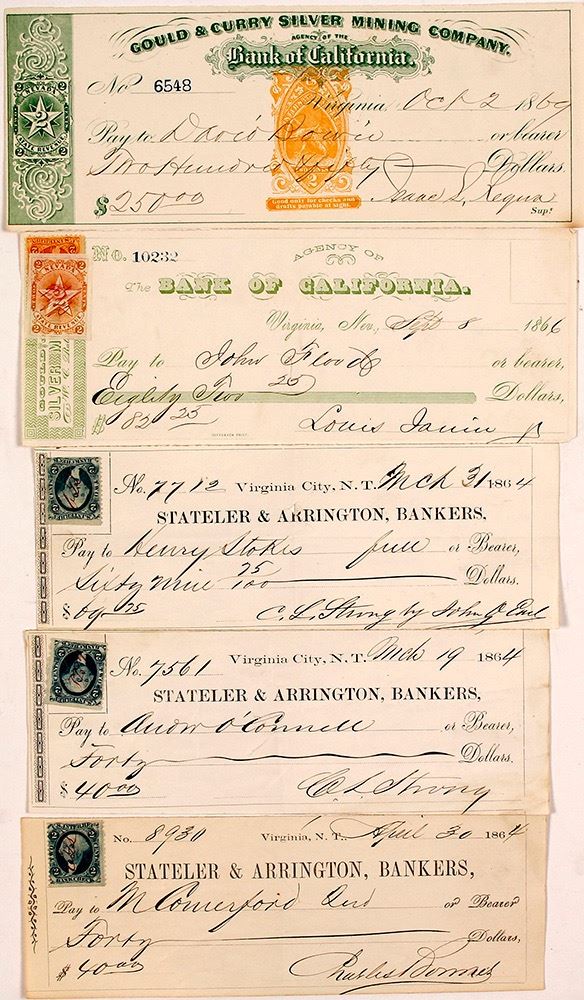 GOULD & CURRY SILVER MINING COMPANY.
AGENCY OF THE
Bank of California.
No 6548
Virginia Oct 2 1869
Pay to David Bowie or bearer
Two Hundred & fifty Dollars.
$250 00 Isaac L. Requa
Supt
NEVADA
2
STATE REVENUE
Good only for checks and
drafts payable at sight.
No. 10232
AGENCY OF
The BANK OF CALIFORNIA.
Virginia, Nev, Sept 8 1866
Pay to John Flood or bearer,
Eighty Two 25 Dollars,
$82 25 Louis Janin Jr
NEVADA
2
STATE REVENUE
No. 7712 Virginia City, N.T. Mch 31 1864
STATELER & ARRINGTON, BANKERS,
Pay to Henry Stokes full or Bearer,
Sixty nine 75/100 Dollars.
$69 75 C. L. Strong by John O Earl
No. 7561 Virginia City, N.T. Mch 19 1864
STATELER & ARRINGTON, BANKERS,
Pay to Andw O'Connell or Bearer,
Forty Dollars.
$40 00 C L Strong
No. 8930 Virginia, N. T., April 30 1864
STATELER & ARRINGTON, BANKERS,
Pay to M Comerford or Bearer
Forty Dollars,
$40 00 Charles Bonner